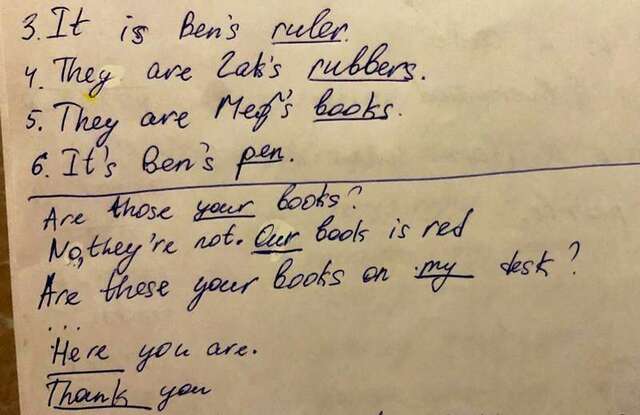 3. It is Ben's ruler.
4. They are Zak's rubbers.
5. They are Meg's books.
6. It's Ben's pen.
Are those your books?
No, they're not. Our book is red
Are these your books on my desk?
...
Here you are.
Thank you